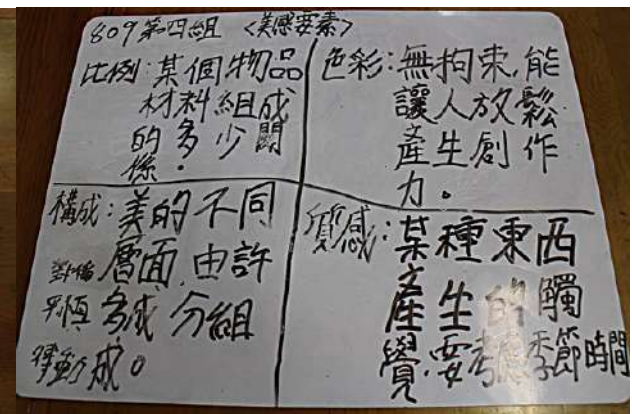 809第四組 <美感要素>
比例:某個物品
材料組成
的多少關
係.
色彩:無拘束,能
讓人放鬆
產生創作
力。
構成:美的不同
層面,由許
多成分組
成。
對稱
平恆
律動
質感:某種東西
產生的觸
覺,要考慮季節時間